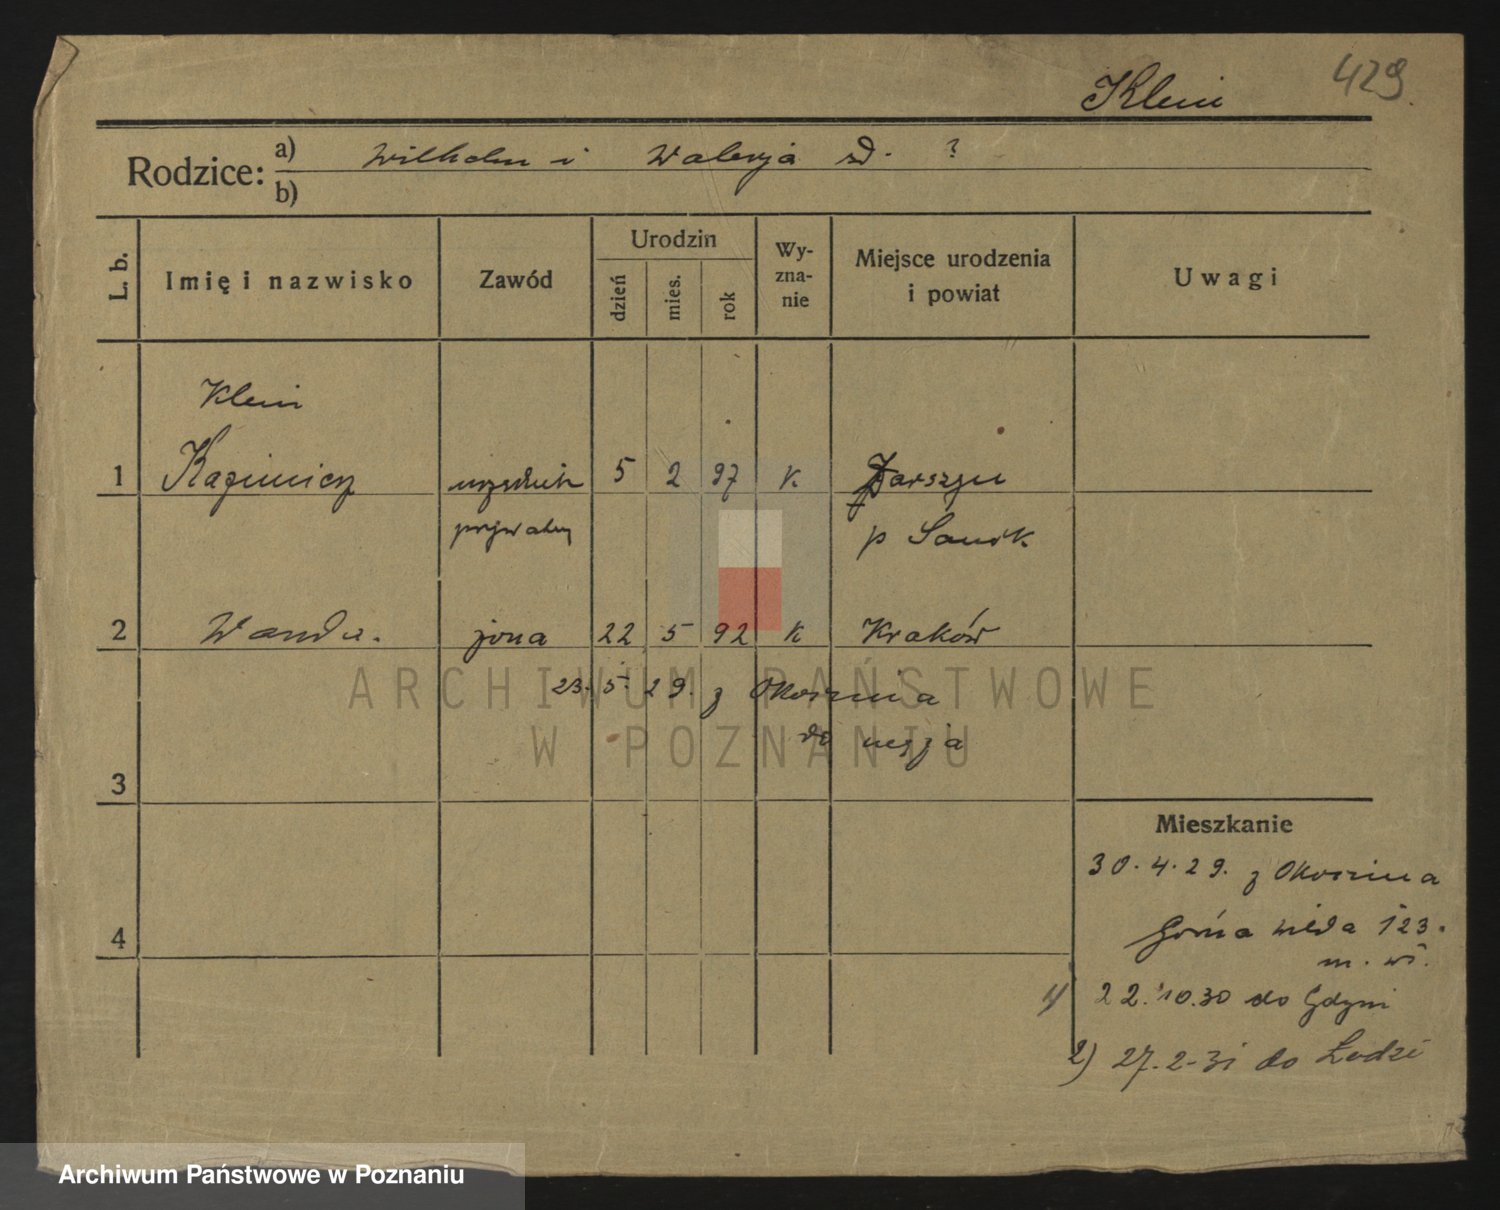 Klein
429
Rodzice: a) Wilhelm i Walerja zd. ?
b)
L. b.
Imię i nazwisko
Zawód
Urodzin
dzień
mies.
rok
Wy-
zna-
nie
Miejsce urodzenia
i powiat
Uwagi
Klein
1 Kazimierz urzędnik 5 2 97 k Zarszyn
prywatny p Sanok
2 Wanda. żona 22 5 92 k Kraków
23. 5. 29. z Okocima
do męża
3
4
Mieszkanie
30. 4. 29. z Okocima
Górna Wilda 123.
m. wł.
1) 22. 10. 30 do Gdyni
2) 27. 2 - 31 do Łodzi
ARCHIWUM PAŃSTWOWE
W POZNANIU
Archiwum Państwowe w Poznaniu